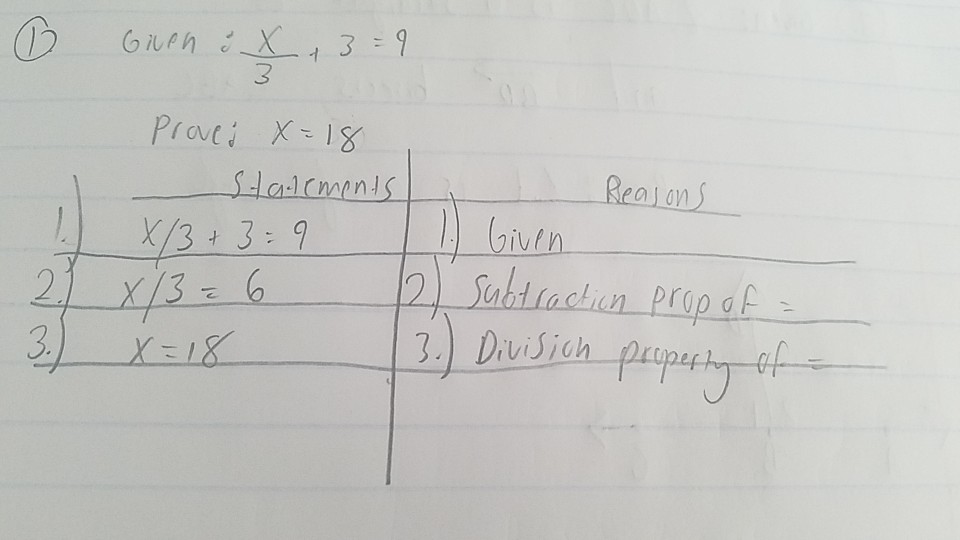 1 Given : x/3 + 3 = 9
Prove; x = 18
Statements Reasons
1.) x/3 + 3 = 9 1.) Given
2.) x/3 = 6 2.) Subtraction prop of =
3.) x = 18 3.) Division property of =